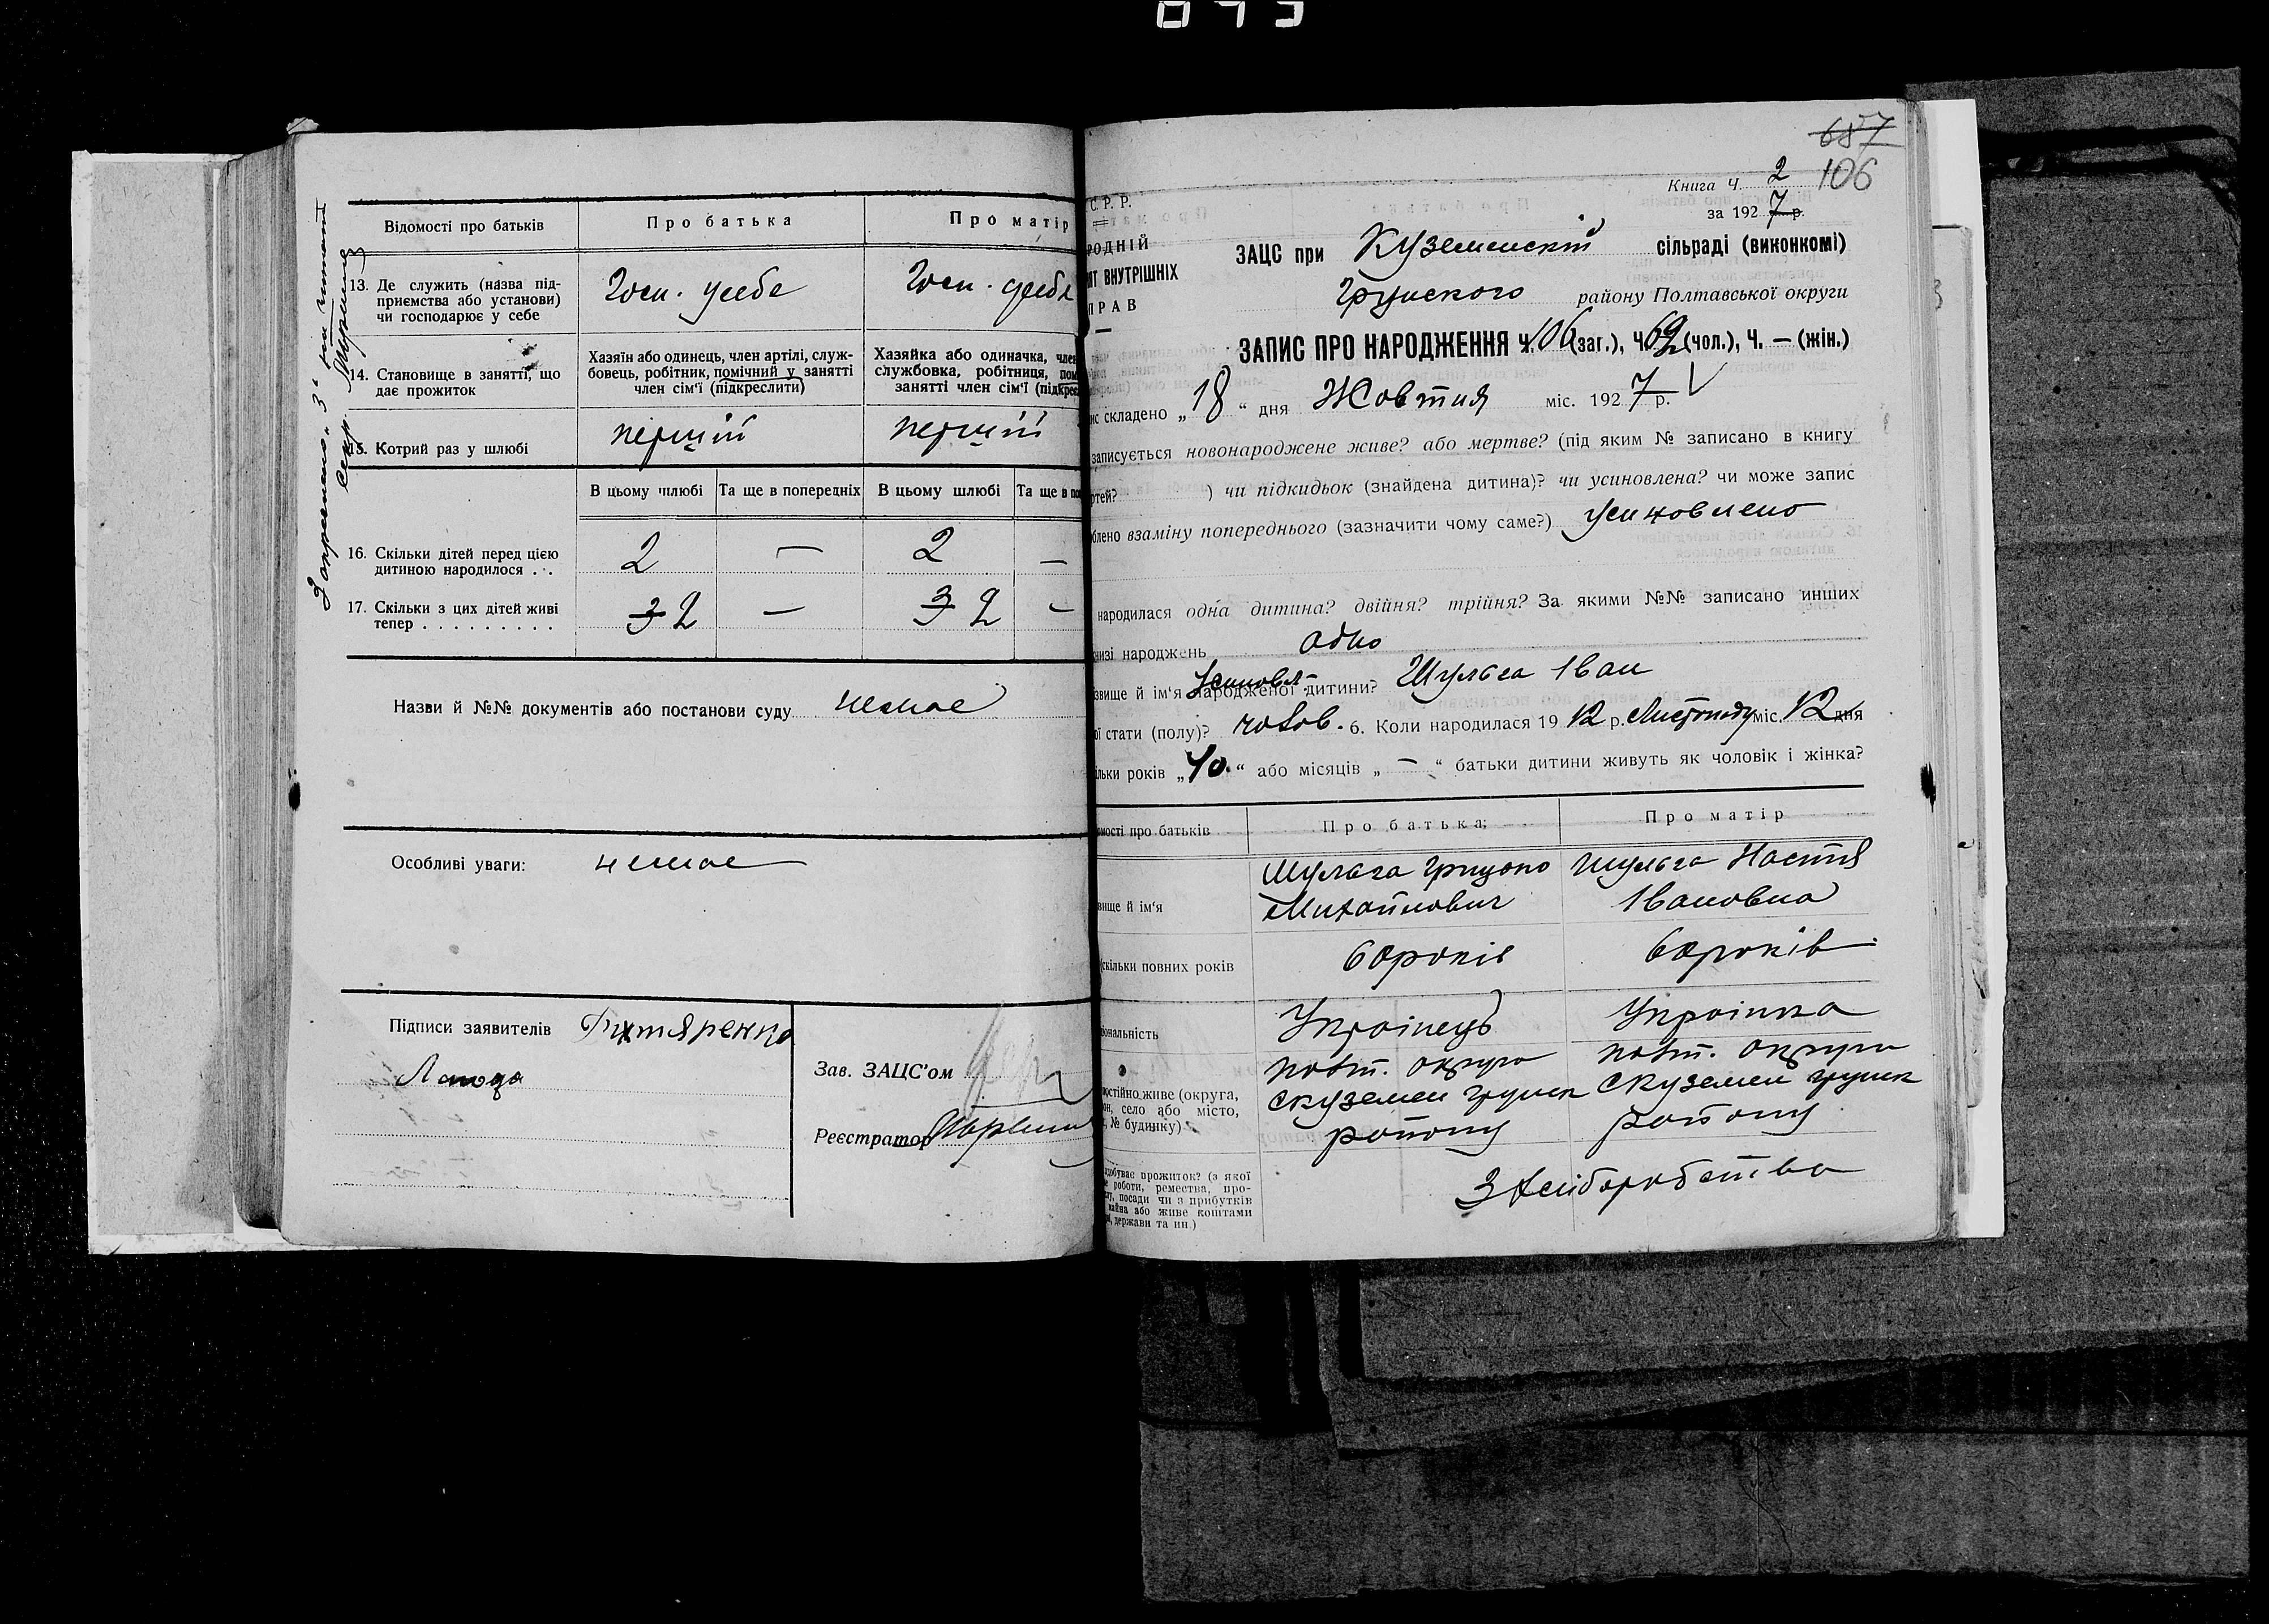 Відомості про батьків
Про батька
Про матір
13. Де служить (назва під-
приємства або установи)
чи господарює у себе
Госп. усебе
Госп. усебе
14. Становище в занятті, що
дає прожиток
Хазяїн або одинець, член артілі, служ-
бовець, робітник, помічний у занятті
член сім'ї (підкреслити)
Хазяйка або одиначка, член
службовка, робітниця, пом
занятті член сім'ї (підкрес
15. Котрий раз у шлюбі
перший
перший
В цьому шлюбі
Та ще в попередніх
В цьому шлюбі
Та ще в по
16. Скільки дітей перед цією
дитиною народилося . .
2
—
2
—
17. Скільки з цих дітей живі
тепер . . . . . . . . .
3 2
—
3 2
—
Назви й №№ документів або постанови суду немає
Особливі уваги: немає
Підписи заявителів
Зав. ЗАЦС'ом
Реєстратор
687
106
Книга Ч. 2
за 1927 р.
С.Р.Р.
РОДНІЙ
ІЯТ ВНУТРІШНІХ
ПРАВ
ЗАЦС при Куземенскій сільраді (виконкомі)
Грунского району Полтавської округи
ЗАПИС ПРО НАРОДЖЕННЯ Ч. 106 (заг.), Ч. 62 (чол.), Ч. — (жін.)
ис складено „18“ дня Жовтня міс. 1927 р.
записується новонароджене живе? або мертве? (під яким № записано в книгу
ртей? ) чи підкидьок (знайдена дитина)? чи усиновлена? чи може запис
блено взаміну попереднього (зазначити чому саме?) Усиновлено
народилася одна дитина? двійня? трійня? За якими №№ записано инших
низі народжень одно
звище й ім'я народженої дитини? Усиновл- Шульга Іван
ої стати (полу)? чолов. 6. Коли народилася 1912 р. Листопаду міс. 12 дня
ільки років „40“ або місяців „—“ батьки дитини живуть як чоловік і жінка?
мості про батьків
Про батька
Про матір
вище й ім'я
Шульга Грицько
Михайлович
Шульга Настя
Івановна
скільки повних років
60 років
60 років
іональність
Українець
Українка
постійно живе (округа,
он, село або місто,
, № будинку)
полт. округи
С Куземен Грунск
району
полт. округи
С Куземен Грунск
району
здобуває прожиток? (з якої
роботи, ремества, про-
, посади чи з прибутків
майна або живе коштами
, держави та ин.)
З хліборобства